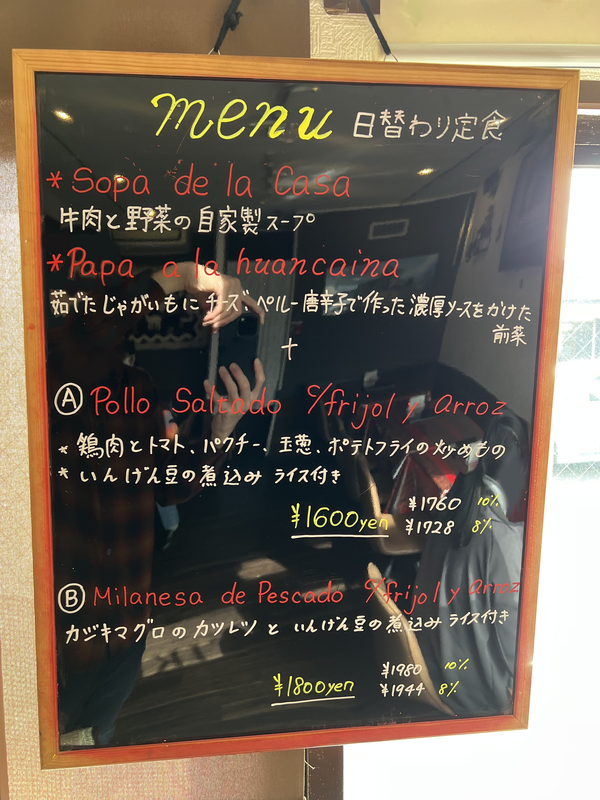 menu 日替わり定食
*Sopa de la Casa
牛肉と野菜の自家製スープ
*Papa a la huancaina
茹でたじゃがいもにチーズ、ペルー唐辛子で作った濃厚ソースをかけた
前菜
+
Ⓐ Pollo Saltado c/frijol y arroz
* 鶏肉とトマト、パクチー、玉葱、ポテトフライの炒めもの
* いんげん豆の煮込み ライス付き
¥1600yen ¥1760 10%
¥1728 8%
Ⓑ Milanesa de Pescado c/frijol y arroz
カジキマグロのカツレツと いんげん豆の煮込み ライス付き
¥1800yen ¥1980 10%
¥1944 8%